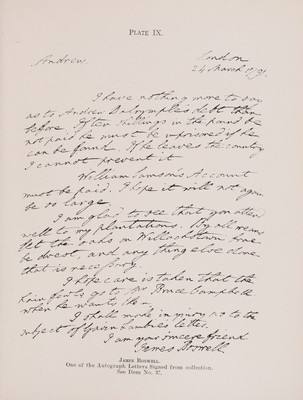 PLATE IX.
Andrew London
24 March 1791
I have nothing more to say
as to Andrew Dalrymple's debt than
before. If ten shillings in the pound be
not paid he must be imprisoned if he
can be found. If he leaves the country
I cannot prevent it
William Samson's Account
must be paid. I hope it will not again
be so large
I am glad to see that you attend
well to my plantations. By all means
let the oaks in be
and any thing else done
that is necessary.
I hope care is taken that the
go to Mr Bruce Campbell
when he wants
I shall make inquiry as to the
subject of Gavin Lambie's letter.
I am your sincere friend
James Boswell
JAMES BOSWELL.
One of the Autograph Letters Signed from collection.
See Item No. 37.